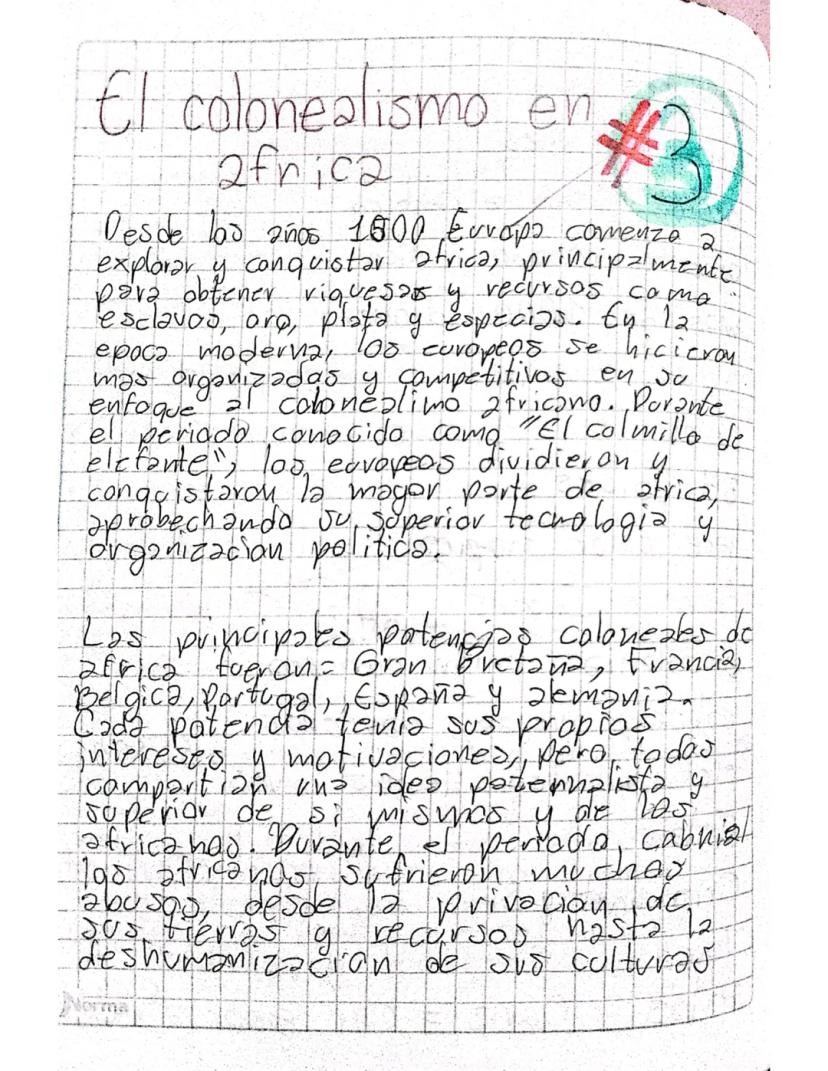 El colonealismo en
africa
#3
Desde los años 1500 Europa comenzo a
explorar y conquistar africa, principalmente
para obtener riquesas y recursos como
esclavos, oro, plata y especias. En la
epoca moderna, los europeos se hicieron
mas organizados y competitivos en su
enfoque al colonealimo africano. Durante
el periodo conocido como "El colmillo de
elefante", los europeos dividieron y
conquistaron la mayor parte de africa,
aprobechando su superior tecnologia y
organizacion politica.
Las principales potencias coloneales de
africa fueron: Gran Bretaña, Francia,
Belgica, Portugal, España y alemania.
Cada potencia tenia sus propios
intereses y motivaciones, pero todas
compartian una idea paternalista y
superior de si mismos y de los
africanos. Durante el periodo
los africanos sufrieron muchos
abusos, desde la privacion de
sus tierras y recursos hasta la
deshumanizacion de sus culturas
Norma